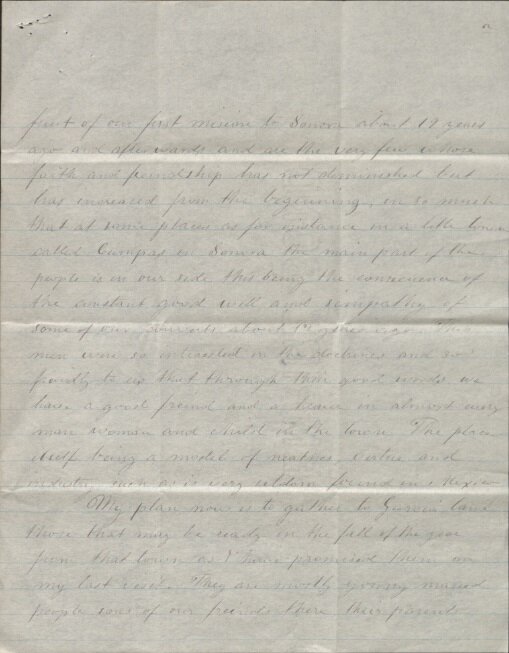 2
fruit of our first mision to Sonora about 19 years
ago and afterwards and are the very few whose
faith and friendship has not diminished but
has increased from the beginning, in so much
that at some places as for instance in a little town
called Cumpas in Sonora the main part of the
people is on our side this being the consecuence of
the constant good will and simpathy of
some of our converts about 19 years ago. This
men were so interested in the doctrines and so
frendly to us that through their good words we
have a good freind and a in almost every
man woman and child in the town. The place
itself being a model of neatnes vertue and
industry such as is very seldom found in Mexico
My plan now is to gather to land
those that may be ready in the fall of the year
from that town as I have promised them on
my last visit. They are mostly young maried
people sons of our freinds there their parents